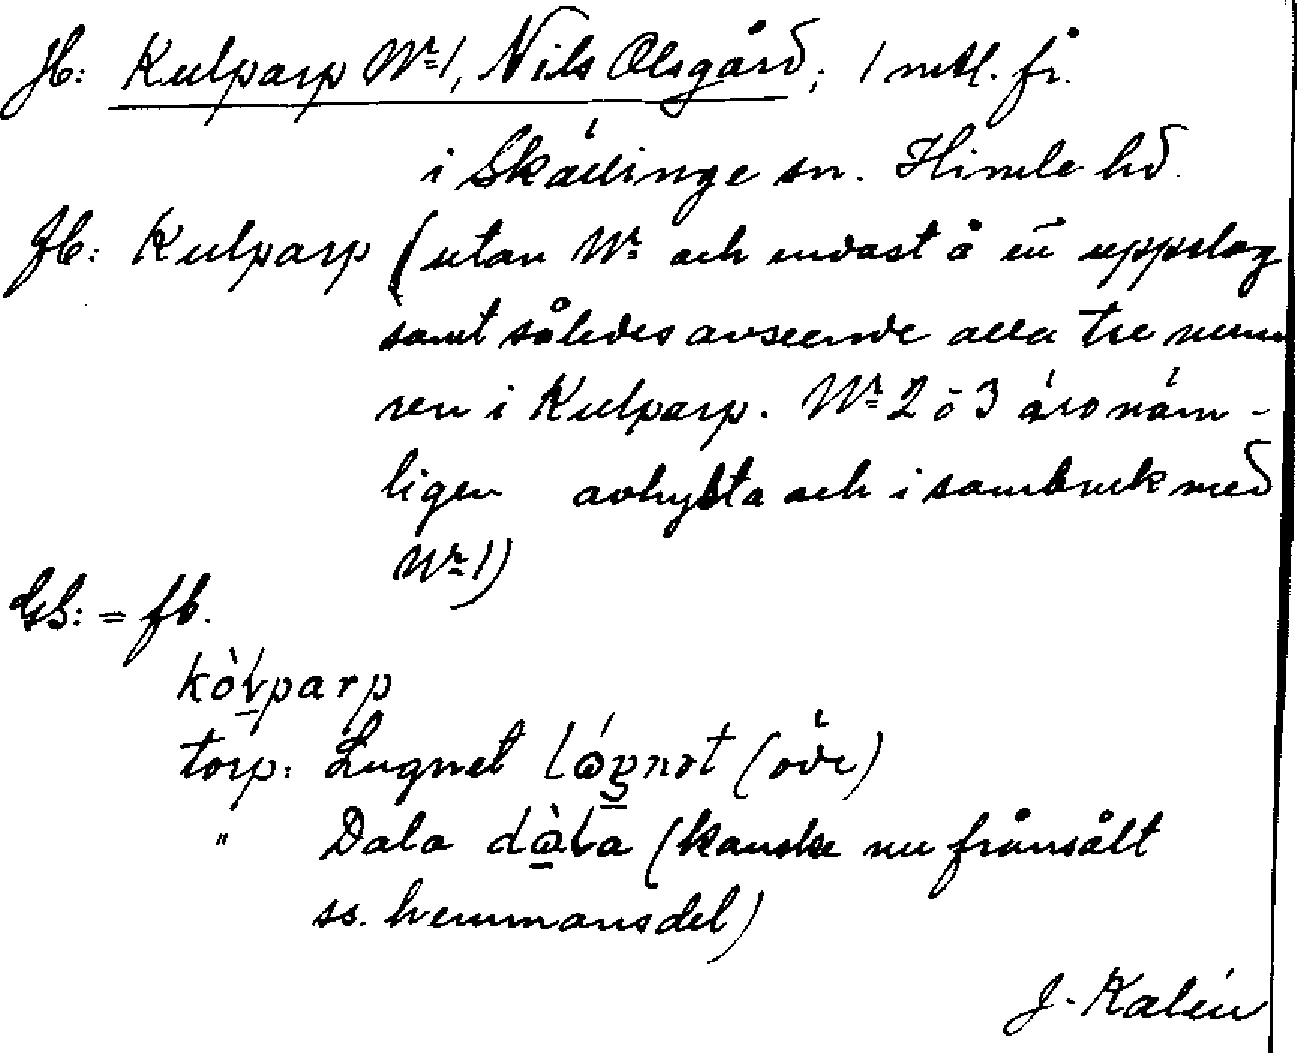 Jb: Kulparp Nr 1, Nils Olsgård; 1 mtl. fr.
i Skällinge sn. Himle hd.
Fb: Kulparp (utan Nr och endast å ett uppslag
samt således avseende alla tre num
ren i Kulparp. Nr 2 o 3 äro näm-
ligen avhysta och i sambruk med
Nr 1)
GS: = fb.
kòlparp
torp: Lugnet lógnət (öde)
" Dala dàla (kanske nu frånsålt
ss. hemmansdel)
J. Kalén